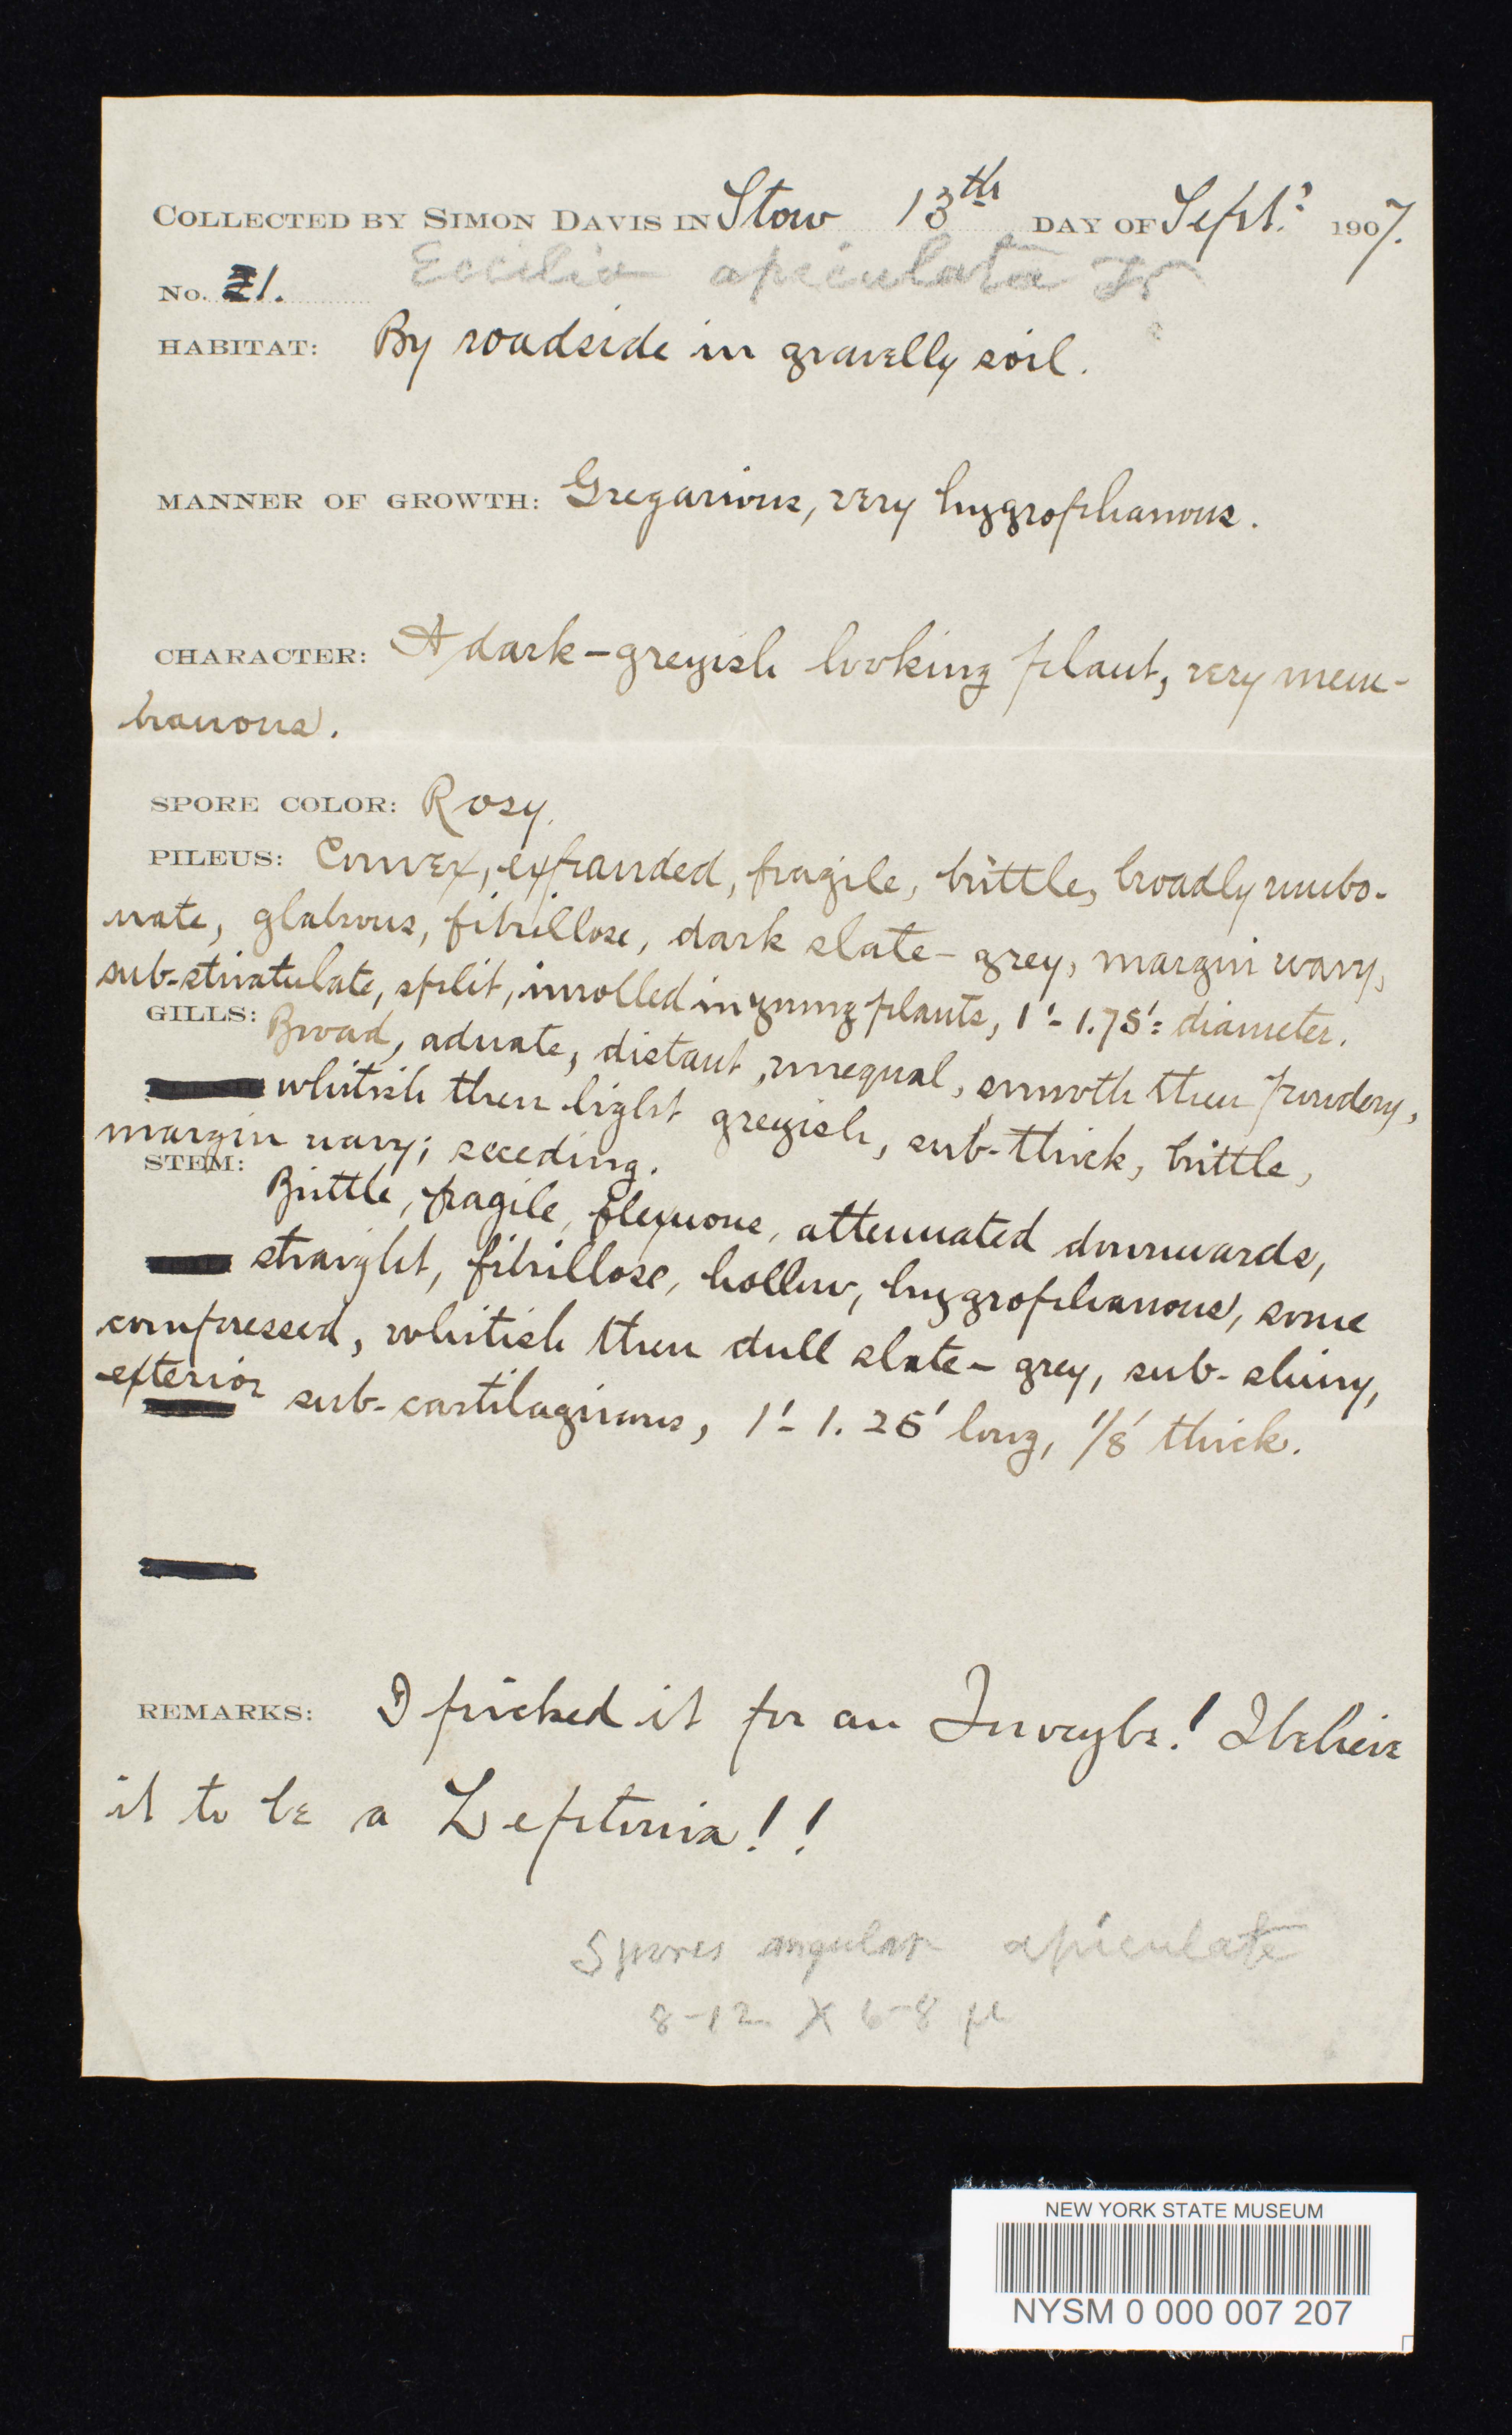 COLLECTED BY SIMON DAVIS IN Stow 13th DAY OF Sept. 1907.
No. 21. Eccilia apiculata Fr
HABITAT: By roadside in gravelly soil.
MANNER OF GROWTH: Gregarious, very hygrophanous.
CHARACTER: A dark-greyish looking plant, very mem-
branous.
SPORE COLOR: Rosy.
PILEUS: Convex, expanded, fragile, brittle, broadly umbo-
nate, glabrous, fibrillose, dark slate-grey, margin wavy,
sub-striatulate, split, inrolled in young plants, 1'-1.75' diameter.
GILLS: Broad, adnate, distant, unequal, smooth then powdery,
whitish then light greyish, sub-thick, brittle,
margin wavy; seceding.
STEM: Brittle, fragile, flexuous, attenuated downwards,
straight, fibrillose, hollow, hygrophanous, some
compressed, whitish then dull slate-grey, sub-shiny,
exterior sub-cartilaginous, 1'-1.25' long, 1/8' thick.
REMARKS: I picked it for an Inocybe! I believe
it to be a Leptonia!!
Spores angular apiculate
8-12 X 6-8 µ
NEW YORK STATE MUSEUM
NYSM 0 000 007 207